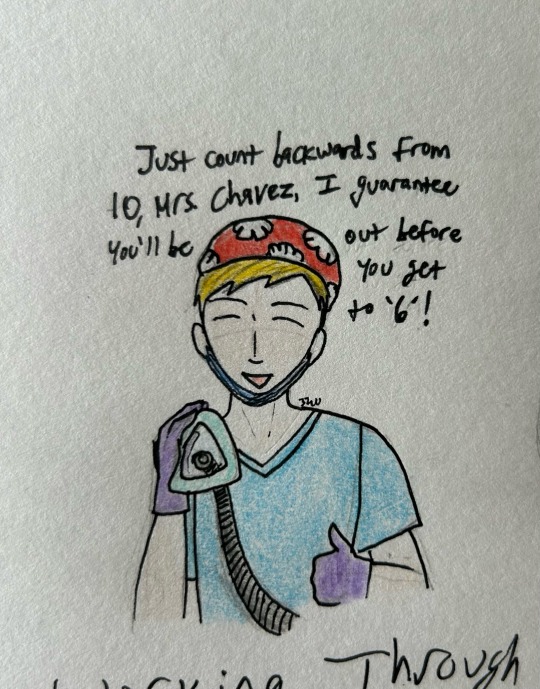 Just count backwards from
10, Mrs. Chavez, I guarantee
You'll be out before
you get
to '6'!
Through